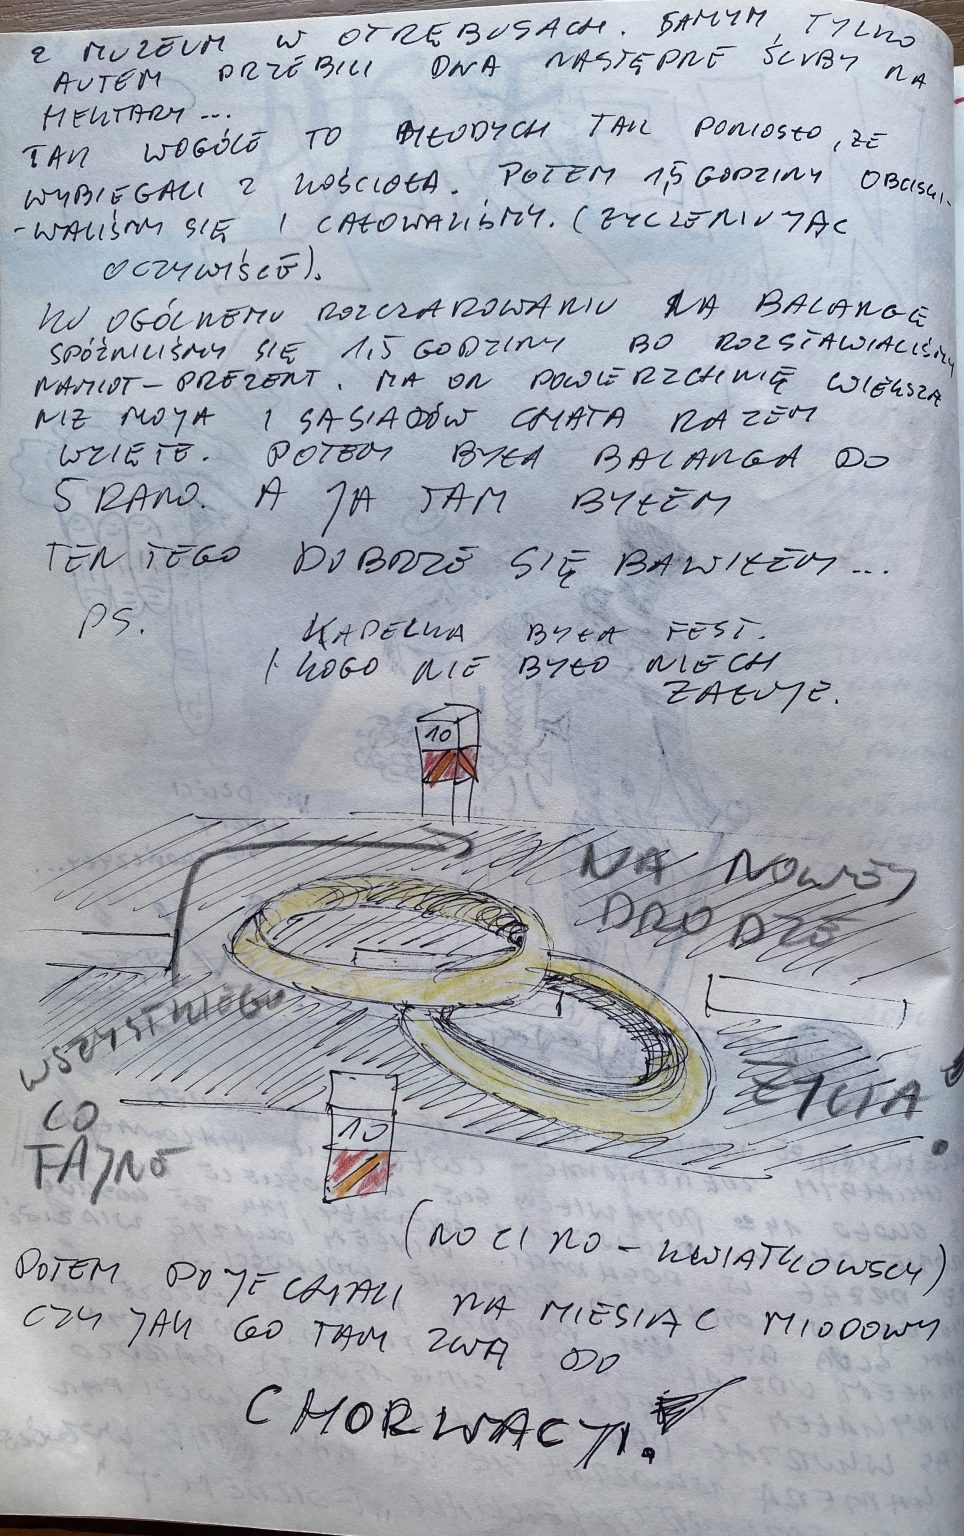 Z MUZEUM W OTRĘBUSACH. SAMYM TYLKO
AUTEM PRZEBILI DWA NASTĘPNE ŚLUBY NA
MENTARY...
TAK WOGÓLE TO MŁODYCH TAK PONIOSŁO, ŻE
WYBIEGALI Z KOŚCIOŁA. POTEM 1,5 GODZINY OBCISKI-
-WALIŚMY SIĘ I CAŁOWALIŚMY. (ŻYCZENIUJĄC
OCZYWIŚCIE).
KU OGÓLNEMU ROZCZAROWANIU NA BALANGĘ
SPÓŹNILIŚMY SIĘ 1,5 GODZINY BO ROZSTAWIALIŚMY
NAMIOT-PREZENT. MA ON POWIERZCHNIĘ WIĘKSZĄ
NIŻ MOJA I SĄSIADÓW CHATA RAZEM
WZIĘTE. POTEM BYŁA BALANGA DO
5 RANO. A JA TAM BYŁEM
TEN TEGO DOBRZE SIĘ BAWIŁEM...
PS.
KAPELKA BYŁA FEST.
I KOGO NIE BYŁO NIECH
ŻAŁUJE.
10
NA NOWEJ
DRODZE
WSZYSTKIEGO
ŻYCIA!
CO
FAJNE
10
(NO CI NO - KWIATKOWSCY)
POTEM POJECHALI NA MIESIĄC MIODOWY
CZY JAK GO TAM ZWĄ DO
CHORWACJI.